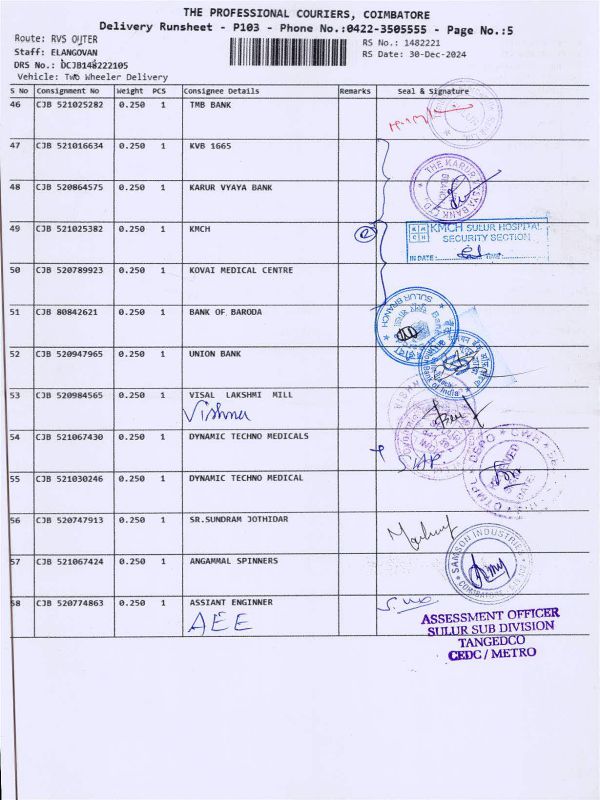 THE PROFESSIONAL COURIERS, COIMBATORE
Delivery Runsheet - P103 - Phone No.:0422-3505555 - Page No.:5
Route: RVS OUTER
RS No.: 1482221
Staff: ELANGOVAN
RS Date: 30-Dec-2024
DRS No.: DCJB148222105
Vehicle: Two Wheeler Delivery
S No Consignment No Weight PCS Consignee Details Remarks Seal & Signature
46 CJB 521025282 0.250 1 TMB BANK
47 CJB 521016634 0.250 1 KVB 1665
THE KARUR
48 CJB 520864575 0.250 1 KARUR VYAYA BANK
49 CJB 521025382 0.250 1 KMCH
KMCH SULUR HOSPITAL
SECURITY SECTION
IN DATE: TIME:
50 CJB 520789923 0.250 1 KOVAI MEDICAL CENTRE
SULUR BRANCH
51 CJB 80842621 0.250 1 BANK OF BARODA
52 CJB 520947965 0.250 1 UNION BANK
53 CJB 520984565 0.250 1 VISAL LAKSHMI MILL
Vishnu
54 CJB 521067430 0.250 1 DYNAMIC TECHNO MEDICALS
55 CJB 521030246 0.250 1 DYNAMIC TECHNO MEDICAL
56 CJB 520747913 0.250 1 SR.SUNDRAM JOTHIDAR
SAMSON INDUSTRIES
57 CJB 521067424 0.250 1 ANGAMMAL SPINNERS
58 CJB 520774863 0.250 1 ASSIANT ENGINNER
AEE
ASSESSMENT OFFICER
SULUR SUB DIVISION
TANGEDCO
CEDC / METRO